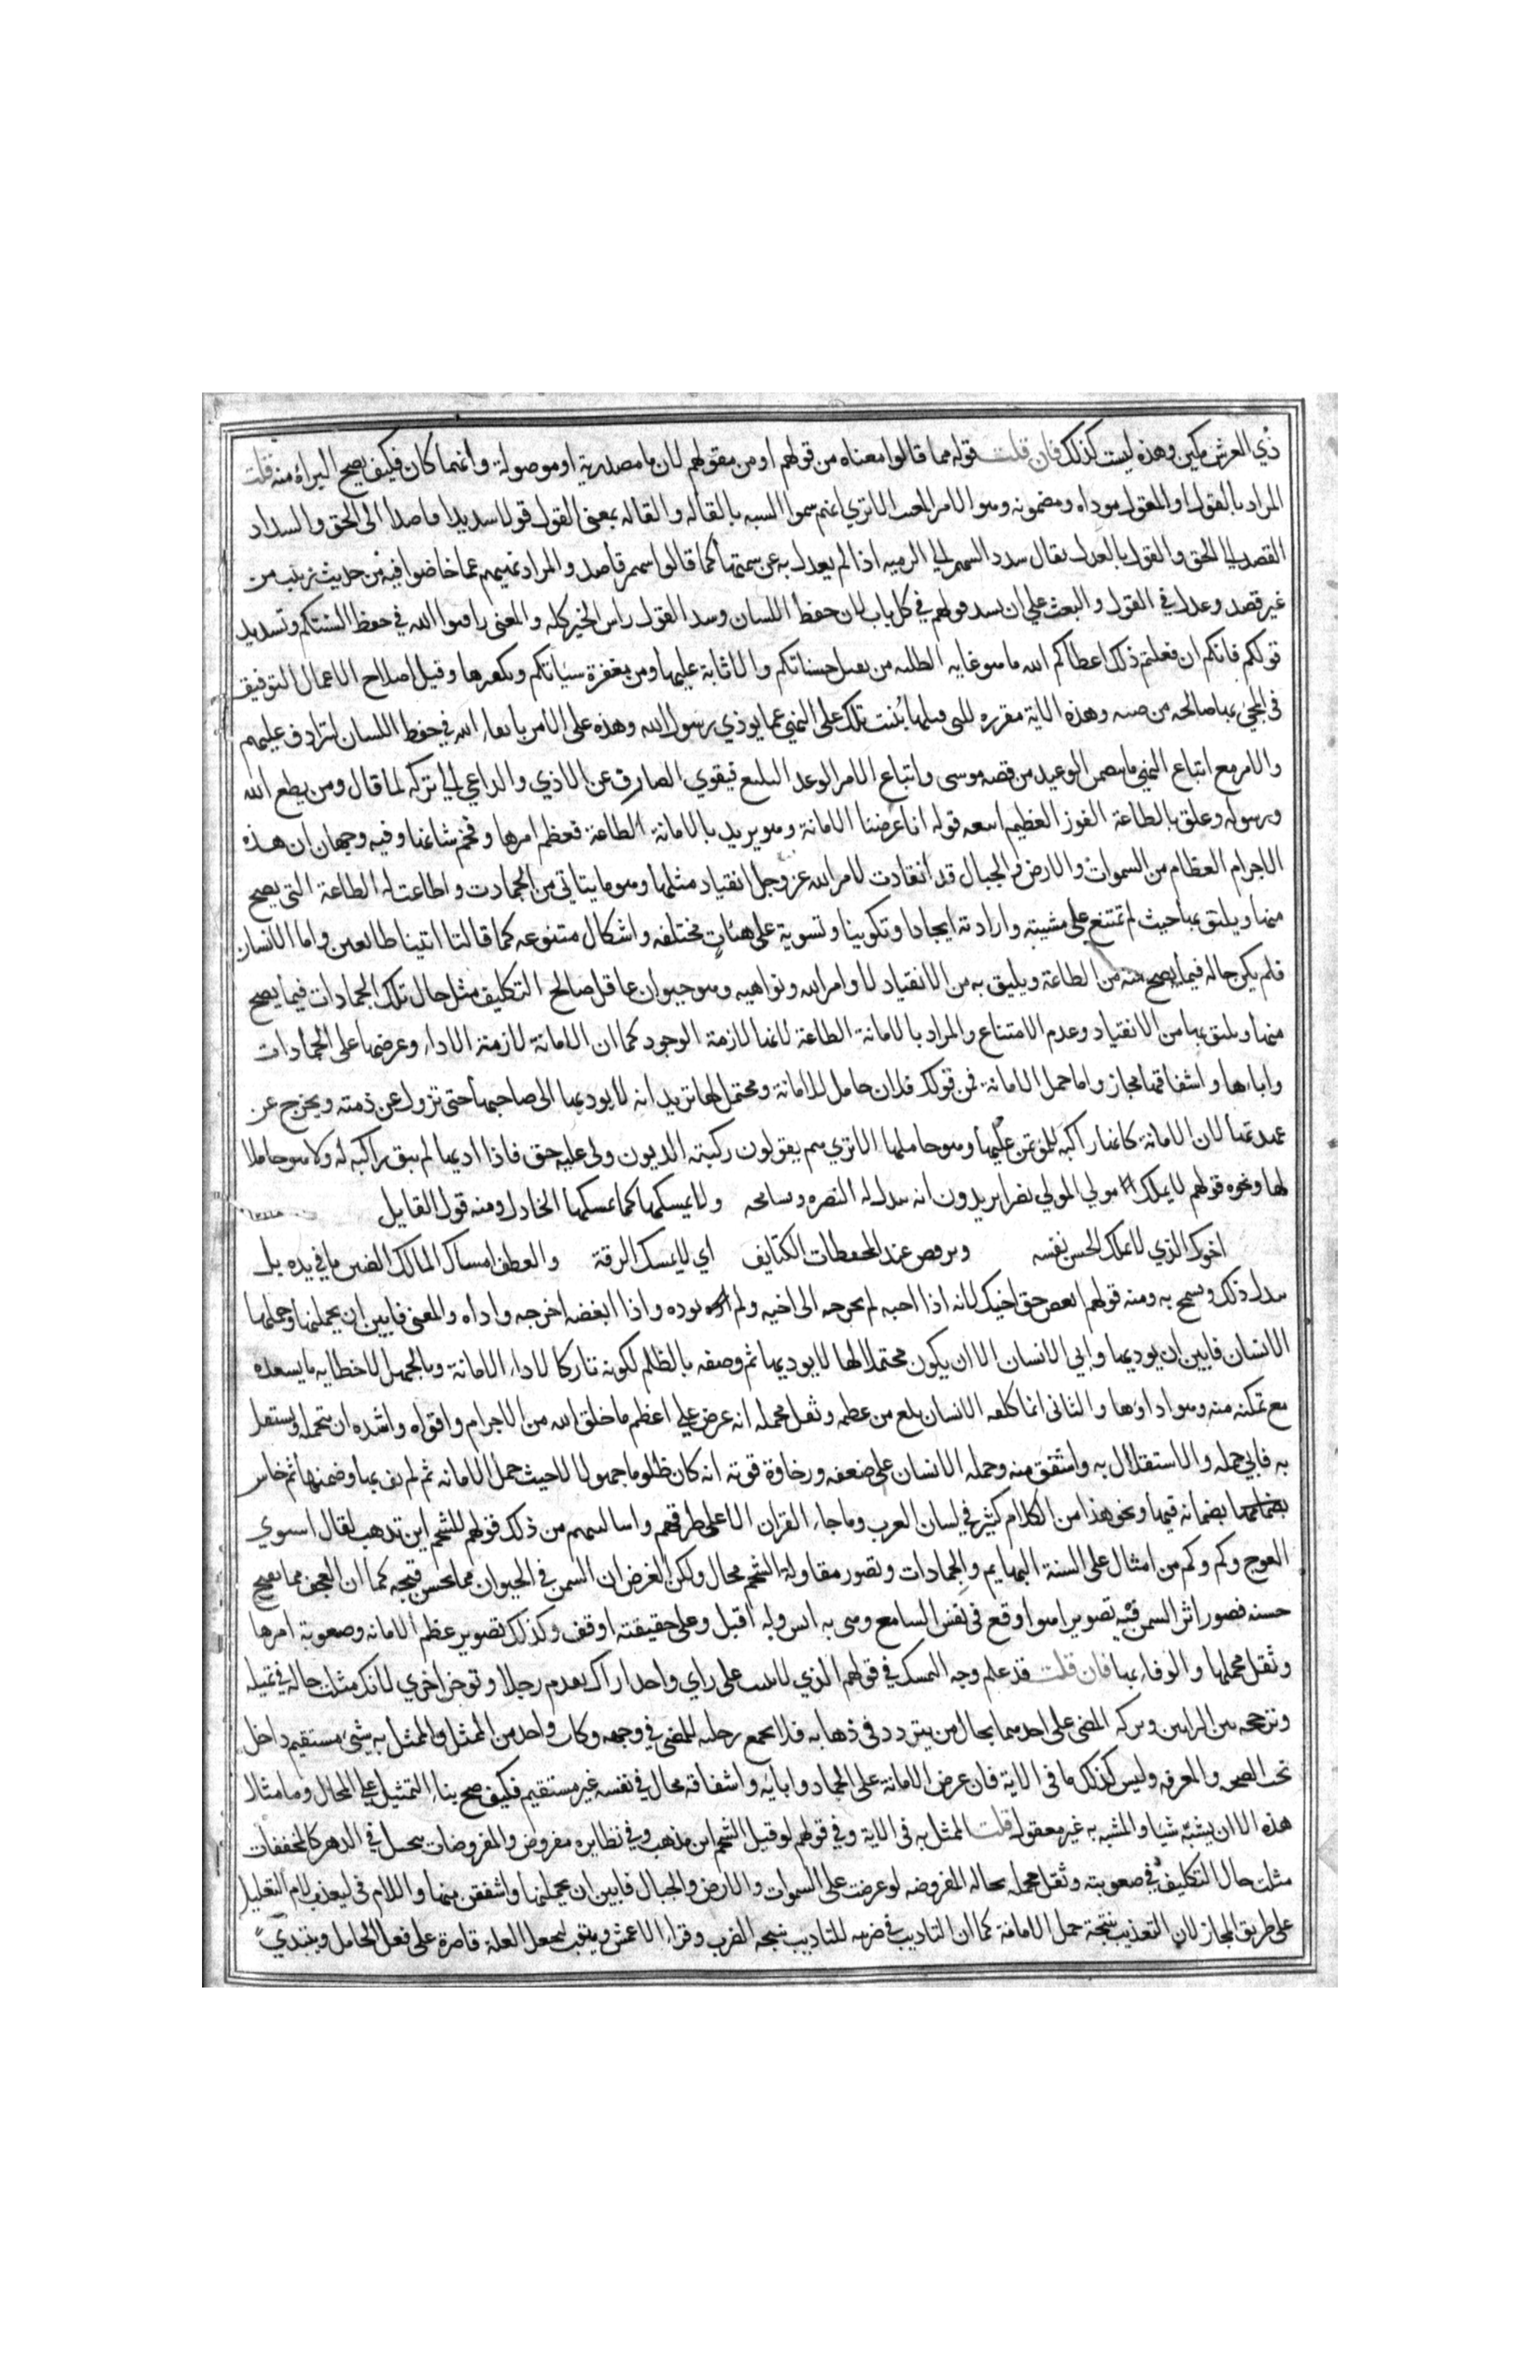 ذي العرش مكين وهذه ليست كذلك فان قلت قوله مما قالوا معناه من قولهم او من مقولهم لان ما مصدرية او موصولة وأيهما كان فكيف يصح البراة منه قلت
المراد بالقول او المقول موداه ومضمونه وهو الامر المعيب الا تري انهم سموا السبه بالقاله والقاله بمعنى القول قولا سديدا قاصدا الى الحق والسداد
القصد الي الحق والقول بالعدل يقال سدد السهم الي الرميه اذا لم يعدل به عن سمتها كما قالوا سهم قاصد والمراد نهيهم عما خاضوا فيه من حديث زينب من
غير قصد وعدل في القول والبعث علي ان يسد قولهم في كل باب لان حفظ اللسان وسد القول راس الخير كله والمعنى راقبوا الله في حفظ السنتكم وتسديد
قولكم فانكم ان فعلتم ذلك اعطاكم الله ما هو غايه الطلبه من تقبل حسناتكم والاثابة عليها ومن مغفرة سيآتكم وتكفيرها وقيل اصلاح الاعمال التوفيق
في المجئ بها صالحه مرضيه وهذه الاية مقرره للتى قبلها بُنيت تلك على النهي عما يوذي رسول الله وهذه على الامر باتقاء الله في حفظ اللسان ليترادف عليهم
والامر مع اتباع النهي ما يتضمن الوعيد من قصه موسى واتباع الامر الوعد البليغ فيقوي الصارف عن الاذي والداعي الي تركه لما قال ومن يطع الله
ورسوله وعلق بالطاعة الفوز العظيم اتبعه قوله انا عرضنا الامانة وهو يريد بالامانة الطاعة فعظم امرها وفخم شانها وفيه وجهان ان هذه
الاجرام العظام من السموات والارض والجبال قد انقادت لامر الله عز وجل انقياد مثلها وهو ما يتاتي من الجمادت واطاعت له الطاعة التى يصح
منها ويليق بها حيث لم تمتنع على مشيته وارادته ايجادا وتكوينا وتسوية على هئات مختلفه واشكال متنوعه كما قالتا اتينا طائعين واما الانسان
فلم يكن حاله فيما يصح منه من الطاعة ويليق به من الانقياد لاوامر الله ونواهيه وهو حيوان عاقل صالح التكليف مثل حال تلك الجمادات فيما يصح
منها ويليق بها من الانقياد وعدم الامتناع والمراد بالامانة الطاعة لانها لازمة الوجود كما ان الامانة لازمة الاداء وعرضها على الجمادات
واباءها واشفاقها مجاز واما حمل الامانة فمن قولك فلان حامل للامانة ومحتمل لها تريد انه لا يوديها الى صاحبها حتى تزول عن ذمته ويخرج عن
عهدتها لان الامانة كانها راكبه للمؤتمن عليها وهو حاملها الا تري هم يقولون ركبته الديون ولى عليه حق فاذا اديها لم تبق راكبه له ولا هو حاملا
لها ونحوه قولهم لا يملك مولي لمولي نصرا يريدون انه يبذل له النصره ويسامحه ولا يمسكها كما يمسكها الخاذل ومنه قول القايل
اخوك الذي لا تملك الحس نفسه وترفض عند المحفظات الكتايف اي لا يمسك الرقة والعطف امساك المالك الضنين ما في يده بل
يبذل ذلك ويسمح به ومنه قولهم ابغض حق اخيك لانه اذا احبه لم يخرجه الى اخيه ولم يوده واذا ابغضه اخرجه واداه والمعنى فابين ان يحملنها وحملها
الانسان فابين ان يوديها وابي الانسان الا ان يكون محتملا لها لا يوديها ثم وصفه بالظلم لكونه تاركا لاداء الامانة وبالجهل لاخطايه ما يسعده
مع تمكنه منه وهو اداوها والثانى انما كلفه الانسان بلغ من عظمه وثقل محمله انه عرض علي اعظم ما خلق الله من الاجرام واقواه واشده ان يتحمله ويستقل
به فابي حمله والاستقلال به واشفق منه وحمله الانسان على ضعفه ورخاوة قوته انه كان ظلوما جهولا لا حيث حمل الامانه ثم لم يف بها وضمنها ثم خاس
بضمانه فيها ونحو هذا من الكلام كثير في لسان العرب وما جاء القران الا على طرقهم واساليبهم من ذلك قولهم للشحم اين تذهب لقال اسوي
العوج وكم وكم من امثال على السنة البهايم والجمادات وتصور مقاولة الشحم محال ولكن الغرض ان السمن في الحيوان مما يحسن قبيحه كما ان العجف مما يقبح
حسنه فصور اثر السمن فيه تصويرا هو اوقع في نفس السامع وهى به انس وله اقبل وعلى حقيقته اوقف وكذلك تصوير عظم الامانه وصعوبة امرها
وثقل محملها والوفاء بها فان قلت قد علم وجه التمسك في قولهم الذي لا يثبت على راي واحد اراك تقدم رجلا وتوخر اخري لانك مثلت حاله في تميله
وترجحه بين الرايين وتركه المضى على احدهما بحال من يتردد فى ذهابه فلا يجمع رجليه للمضي في وجهه وكل واحد من الممثل والممثل به شئ مستقيم داخل
تحت الصحه والمعرفه وليس كذلك ما في الاية فان عرض الامانة على الجماد وابايه واشفاقه محال في نفسه غير مستقيم فكيف صح بناء التمثيل علي المحال وما مثال
هذه الا ان يشبه شيا والمشبه به غير معقول قلت الممثل به في الاية وفي قولهم لو قيل للشحم اين تذهب وفي نظايره مفروض والمفروضات تتخيل في الدهر كالمحققات
مثلت حال التكليف في صعوبته وثقل محمله بحاله المفروضه لو عرضت على السموات والارض والجبال فابين ان يحملنها واشفقن منها واللام في ليعذب لام التعليل
على طريق المجاز لان التعذيب نتيجة حمل الامانة كما ان التاديب في ضربه للتاديب نتيجه الضرب وقراء الاعمش ويتوب ليجعل العلة قاصرة على فعل الحامل ويبتدي